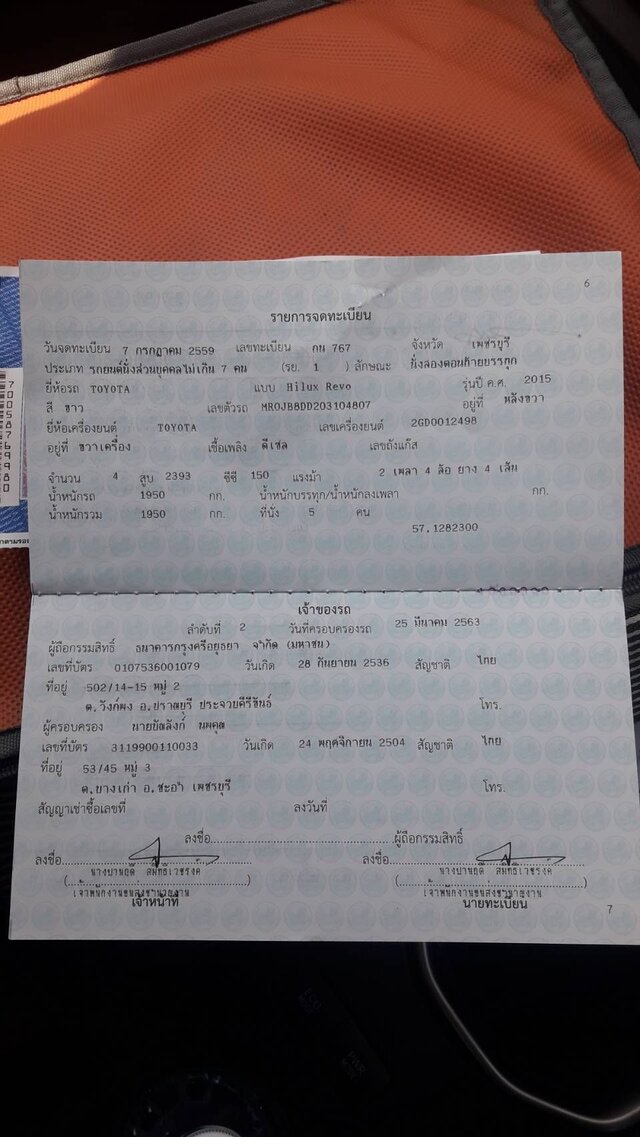 6
รายการจดทะเบียน
วันจดทะเบียน 7 กรกฎาคม 2559 เลขทะเบียน กน 767 จังหวัด เพชรบุรี
ประเภท รถยนต์นั่งส่วนบุคคลไม่เกิน 7 คน (รย. 1 ) ลักษณะ นั่งสองตอนท้ายบรรทุก
ยี่ห้อรถ TOYOTA แบบ Hilux Revo รุ่นปี ค.ศ. 2015
สี ขาว เลขตัวรถ MR0JB8DD203104807 อยู่ที่ หลังขวา
ยี่ห้อเครื่องยนต์ TOYOTA เลขเครื่องยนต์ 2GD0012498
อยู่ที่ ขวาเครื่อง เชื้อเพลิง ดีเซล เลขถังแก๊ส
จำนวน 4 สูบ 2393 ซีซี 150 แรงม้า 2 เพลา 4 ล้อ ยาง 4 เส้น
น้ำหนักรถ 1950 กก. น้ำหนักบรรทุก/น้ำหนักลงเพลา กก.
น้ำหนักรวม 1950 กก. ที่นั่ง 5 คน
57.1282300
เจ้าของรถ
ลำดับที่ 2 วันที่ครอบครองรถ 25 มีนาคม 2563
ผู้ถือกรรมสิทธิ์ ธนาคารกรุงศรีอยุธยา จำกัด (มหาชน)
เลขที่บัตร 0107536001079 วันเกิด 28 กันยายน 2536 สัญชาติ ไทย
ที่อยู่ 502/14-15 หมู่ 2
ต.วังก์พง อ.ปราณบุรี ประจวบคีรีขันธ์ โทร.
ผู้ครอบครอง นายบัลลังก์
เลขที่บัตร 3119900110033 วันเกิด 24 พฤศจิกายน 2504 สัญชาติ ไทย
ที่อยู่ 53/45 หมู่ 3
ต.บางเก่า อ.ชะอำ เพชรบุรี โทร.
สัญญาเช่าซื้อเลขที่ ลงวันที่
ลงชื่อ ผู้ถือกรรมสิทธิ์
ลงชื่อ ลงชื่อ
เจ้าพนักงานขนส่งชำนาญงาน เจ้าพนักงานขนส่งชำนาญงาน
เจ้าหน้าที่ นายทะเบียน
7